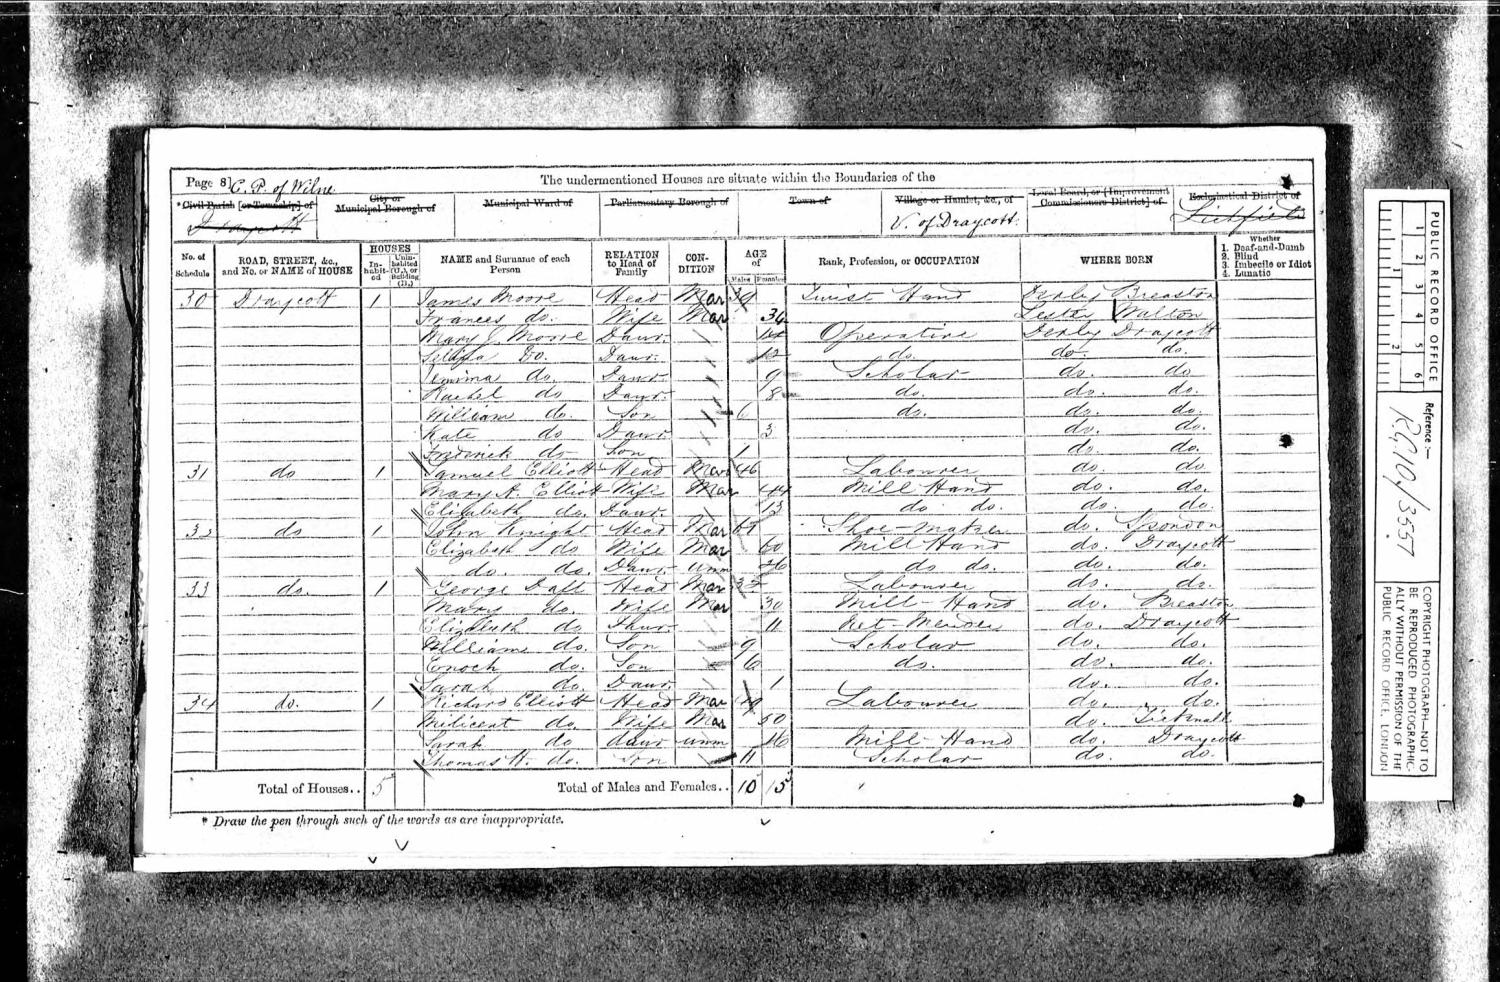 Page 8] C. P. of Wilne The undermentioned Houses are situate within the Boundaries of the
* Civil Parish [or Township] of City or Municipal Borough of Municipal Ward of Parliamentary Borough of Town of Village or Hamlet, &c., of Local Board, or [Improvement Commissioners District] of Ecclesiastical District of
Draycott V. of Draycott.
No. of Schedule ROAD, STREET, &c., and No. or NAME of HOUSE HOUSES Inhabited Uninhabited (U.), or Building (B.) NAME and Surname of each Person RELATION to Head of Family CONDITION AGE of Males Females Rank, Profession, or OCCUPATION WHERE BORN Whether 1. Deaf-and-Dumb 2. Blind 3. Imbecile or Idiot 4. Lunatic
30 Draycott 1 James Moore Head Mar 39 Twist Hand Derby Breaston
Frances do. Wife Mar Walton
Mary J Moore Daur. Operative Derby Draycott
do. Daur. 12 do. do. do.
Jemima do. Daur. 9 Scholar do. do
Rachel do Daur. 8 do. do. do.
William do. Son 6 do. do. do.
Kate do Daur 3 do. do.
Fredrick do Son 1 do. do.
31 do 1 Samuel Elliott Head Mar 46 Labourer do. do
Mary A. Elliott Wife Mar 44 Mill Hand do. do.
Elizabeth do. Daur. 13 do do. do. do.
32 do 1 John Knight Head Mar Shoe-maker do. Spondon
Elizabeth do Wife Mar 60 Mill Hand do. Draycott
do. do. Daur unm 26 do do. do. do.
33 do. 1 George Daft Head Mar Labourer do. do.
Mary do. Wife Mar 30 Mill-Hand do. Breaston
Elizabeth do Daur. 11 Net-Mender do. Draycott
William do. Son 9 Scholar do. do.
Enoch do. Son 6 do. do. do.
Sarah do. Daur 1 do. do.
34 do. 1 Richard Elliott Head Mar 49 Labourer do. do.
Milicent do. Wife Mar 50 do.
Sarah do daur unm 16 Mill-Hand do. Draycott
Thomas H. do. Son 11 Scholar do. do.
Total of Houses.. 5 Total of Males and Females.. 10 15
* Draw the pen through such of the words as are inappropriate.
PUBLIC RECORD OFFICE
1 2 3 4 5 6
1 2
Reference:-
RG10/3557
COPYRIGHT PHOTOGRAPH-NOT TO BE REPRODUCED PHOTOGRAPHICALLY WITHOUT PERMISSION OF THE PUBLIC RECORD OFFICE, LONDON